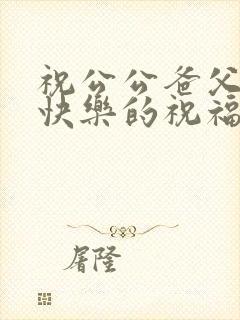 祝公公爸父
快乐的祝福
屠隆